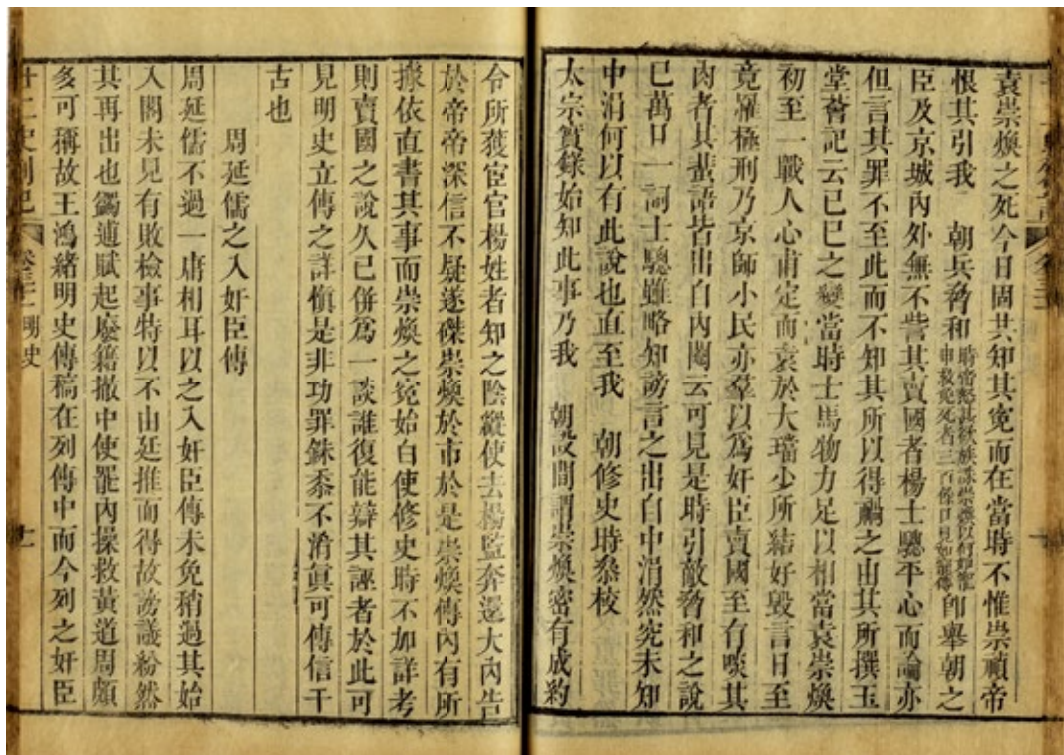 袁崇煥之死今日固共知其寃而在當時不惟崇禎帝
恨其引我　朝兵脅和時帝怒甚欲族誅崇煥以何如寵申救免死者三百餘口見如寵傳卽舉朝之
臣及京城內外無不訾其賣國者楊士聰平心而論亦
但言其罪不至此而不知其所以得禍之由其所撰玉
堂薈記云己巳之變當時士馬物力足以相當袁崇煥
初至一戰人心甫定而袁於大璫少所結好毀言日至
竟罹極刑乃京師小民亦羣以爲奸臣賣國至有啖其
肉者其蜚語皆出自內閣云可見是時引敵脅和之說
已萬口一詞士聰雖略知謗言之出自中涓然究未知
中涓何以有此說也直至我　朝修史時叅校
太宗實錄始知此事乃我　朝設間謂崇煥密有成約
令所獲宦官楊姓者知之陰縱使去楊監奔還大內告
於帝帝深信不疑遂磔崇煥於市於是崇煥傳內有所
據依直書其事而崇煥之寃始白使修史時不加詳考
則賣國之說久已併爲一談誰復能辯其誣者於此可
見明史立傳之詳愼是非功罪銖黍不淆眞可傳信千
古也
周延儒之入奸臣傳
周延儒不過一庸相耳以之入奸臣傳未免稍過其始
入閣未見有敗檢事特以不由廷推而得故謗議紛然
其再出也蠲逋賦起廢籍撤中使罷內操救黃道周頗
多可稱故王鴻緒明史傳稿在列傳中而今列之奸臣
廿二史劄記　卷三十一　明史　十一